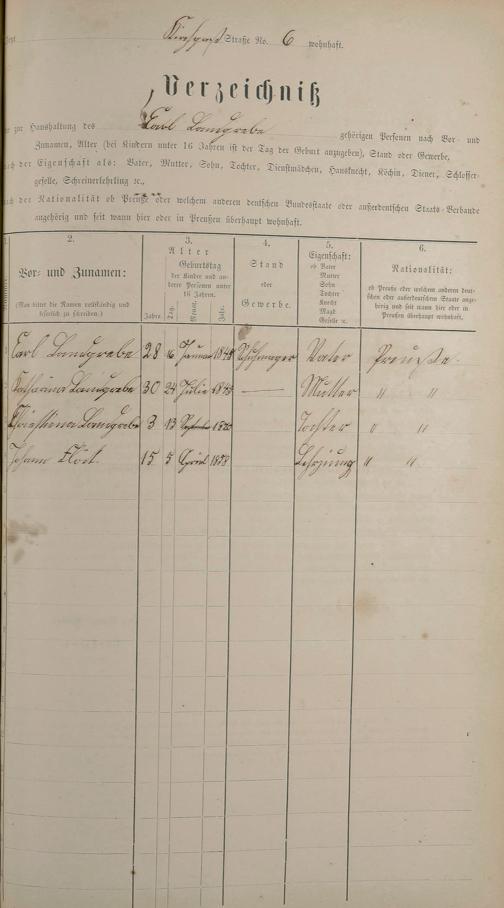 Straße No. 6 wohnhaft.
Verzeichniß
zur Haushaltung des Carl Landgrebe gehörigen Personen nach Vor- und
Zunamen, Alter (bei Kindern unter 16 Jahren ist der Tag der Geburt anzugeben), Stand oder Gewerbe,
nach der Eigenschaft als: Vater, Mutter, Sohn, Tochter, Dienstmädchen, Hausknecht, Köchin, Diener, Schlosser-
geselle, Schreinerlehrling ꝛc.,
nach der Nationalität ob Preuße oder welchem anderen deutschen Bundesstaate oder außerdeutschen Staats-Verbande
angehörig und seit wann hier oder in Preußen überhaupt wohnhaft.
2.
Vor- und Zunamen:
(Man bittet die Namen vollständig und
leserlich zu schreiben.)
3.
Alter
Geburtstag
der Kinder und an-
derer Personen unter
16 Jahren.
Jahre
Tag.
Monat.
Jahr.
4.
Stand
oder
Gewerbe.
5.
Eigenschaft:
ob Vater
Mutter
Sohn
Tochter
Knecht
Magd
Geselle ꝛc.
6.
Nationalität:
ob Preuße oder welchem anderen deut-
schen oder außerdeutschen Staate ange-
hörig und seit wann hier oder in
Preußen überhaupt wohnhaft.
Carl Landgrebe 28 16 Januar Vater Preuße.
Catharina Landgrebe 30 24 Julie — Mutter " "
Christina Landgrebe 3 13 Tochter " "
Johann 15 5 April Lehrjung " "